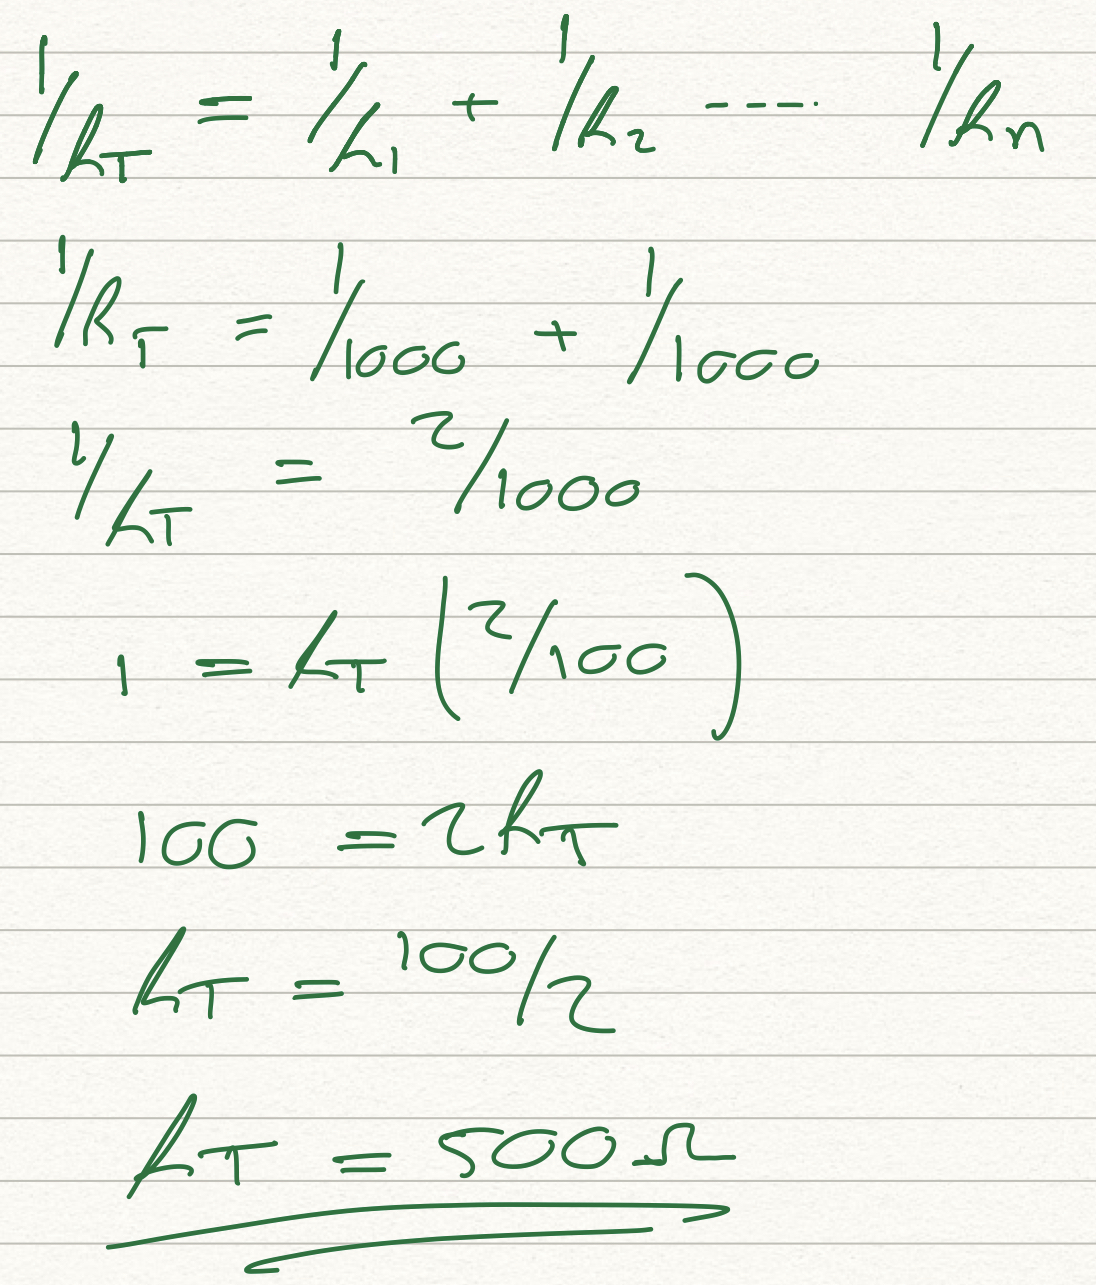 1/RT = 1/R1 + 1/R2 ---- 1/Rn
1/RT = 1/1000 + 1/1000
1/RT = 2/1000
1 = RT (2/100)
100 = 2RT
RT = 100/2
RT = 500Ω